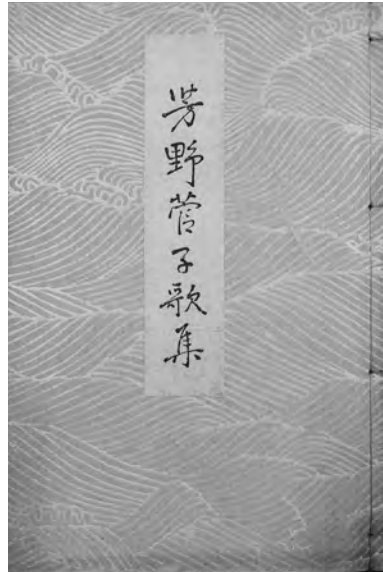 芳野菅子歌集